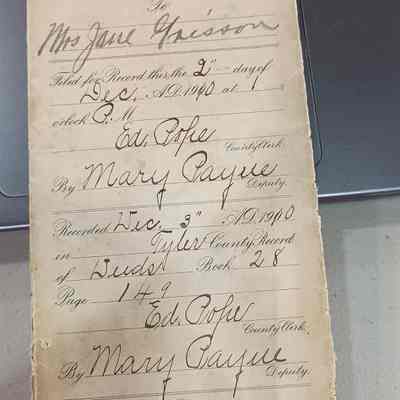 To
Mrs Jane Grisson
Filed for Record this the 2" day of
Dec. A.D. 1910 at 1
o'clock P. M
Ed. Pope
County Clerk.
By Mary Payne
Deputy.
Recorded Dec, 3" A.D. 1910
in Tyler County Record
of Deeds Book 28
Page 149
Ed. Pope
County Clerk.
By Mary Payne
Deputy.